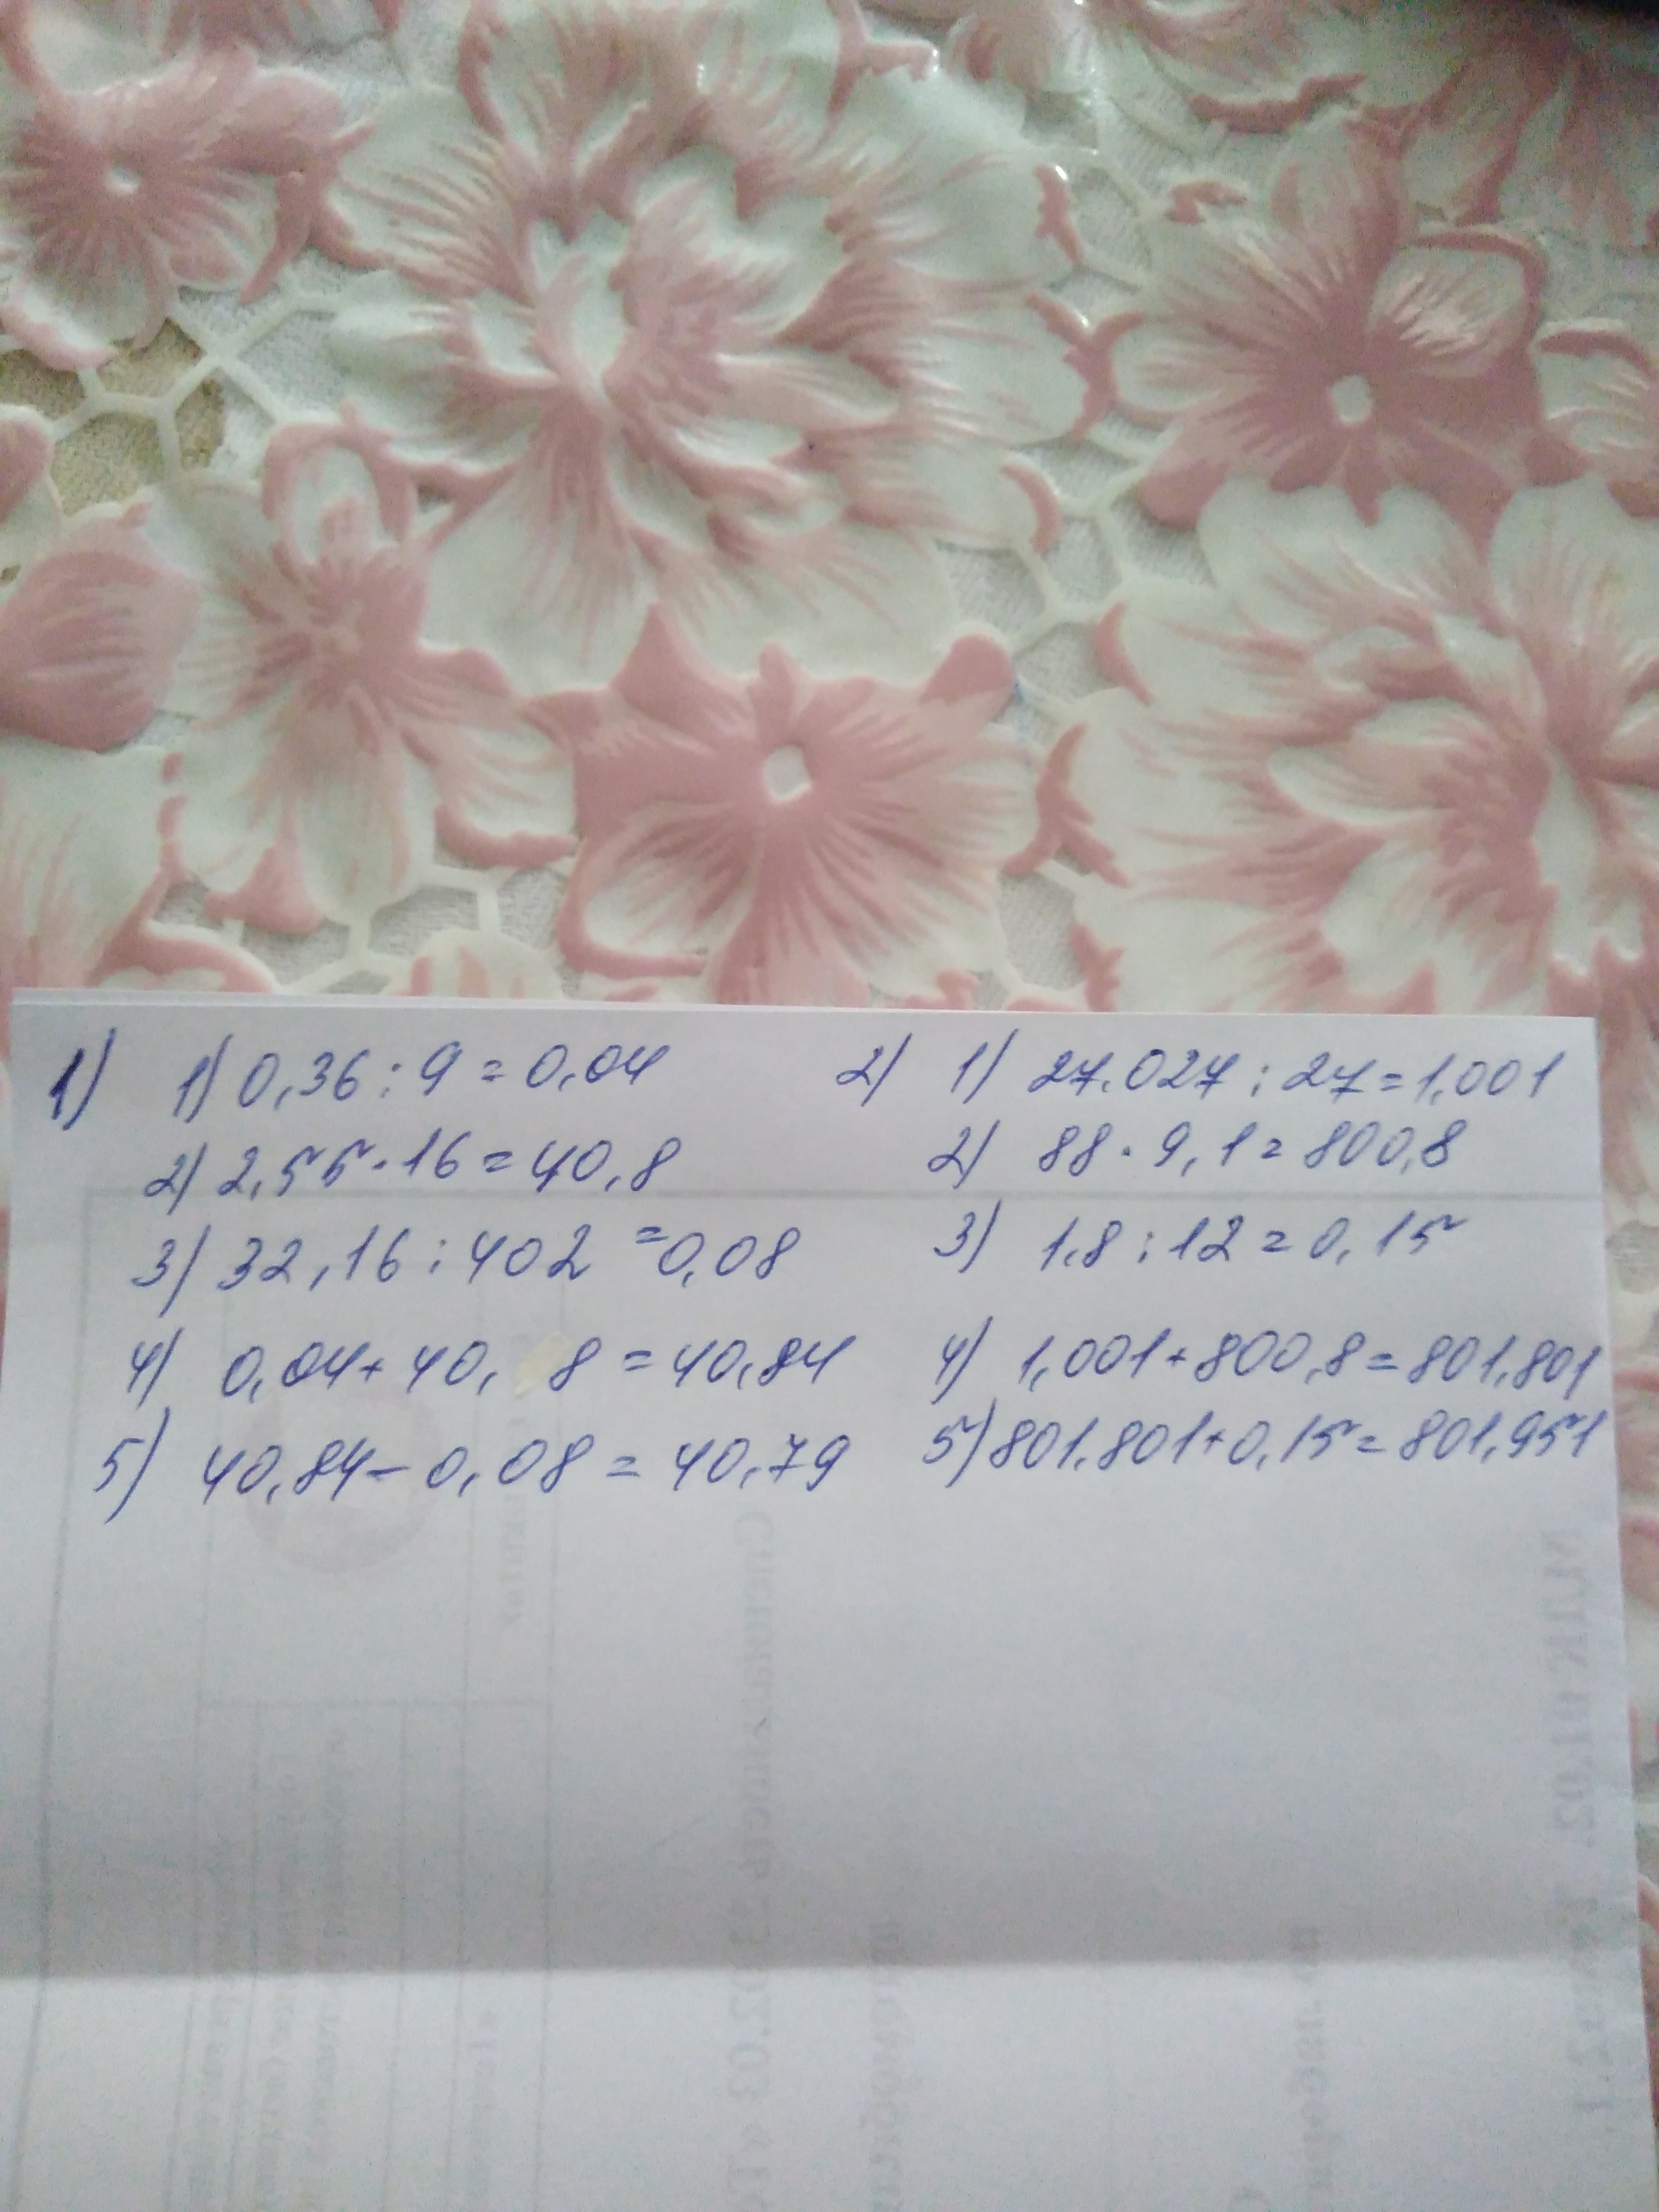 1) 1) 0,36 : 9 = 0,04
2) 2,55 · 16 = 40,8
3) 32,16 : 402 = 0,08
4) 0,04 + 40, 8 = 40,84
5) 40,84 - 0,08 = 40,79
2) 1) 27,027 : 27 = 1,001
2) 88 · 9,1 = 800,8
3) 1,8 : 12 = 0,15
4) 1,001 + 800,8 = 801,801
5) 801,801 + 0,15 = 801,951